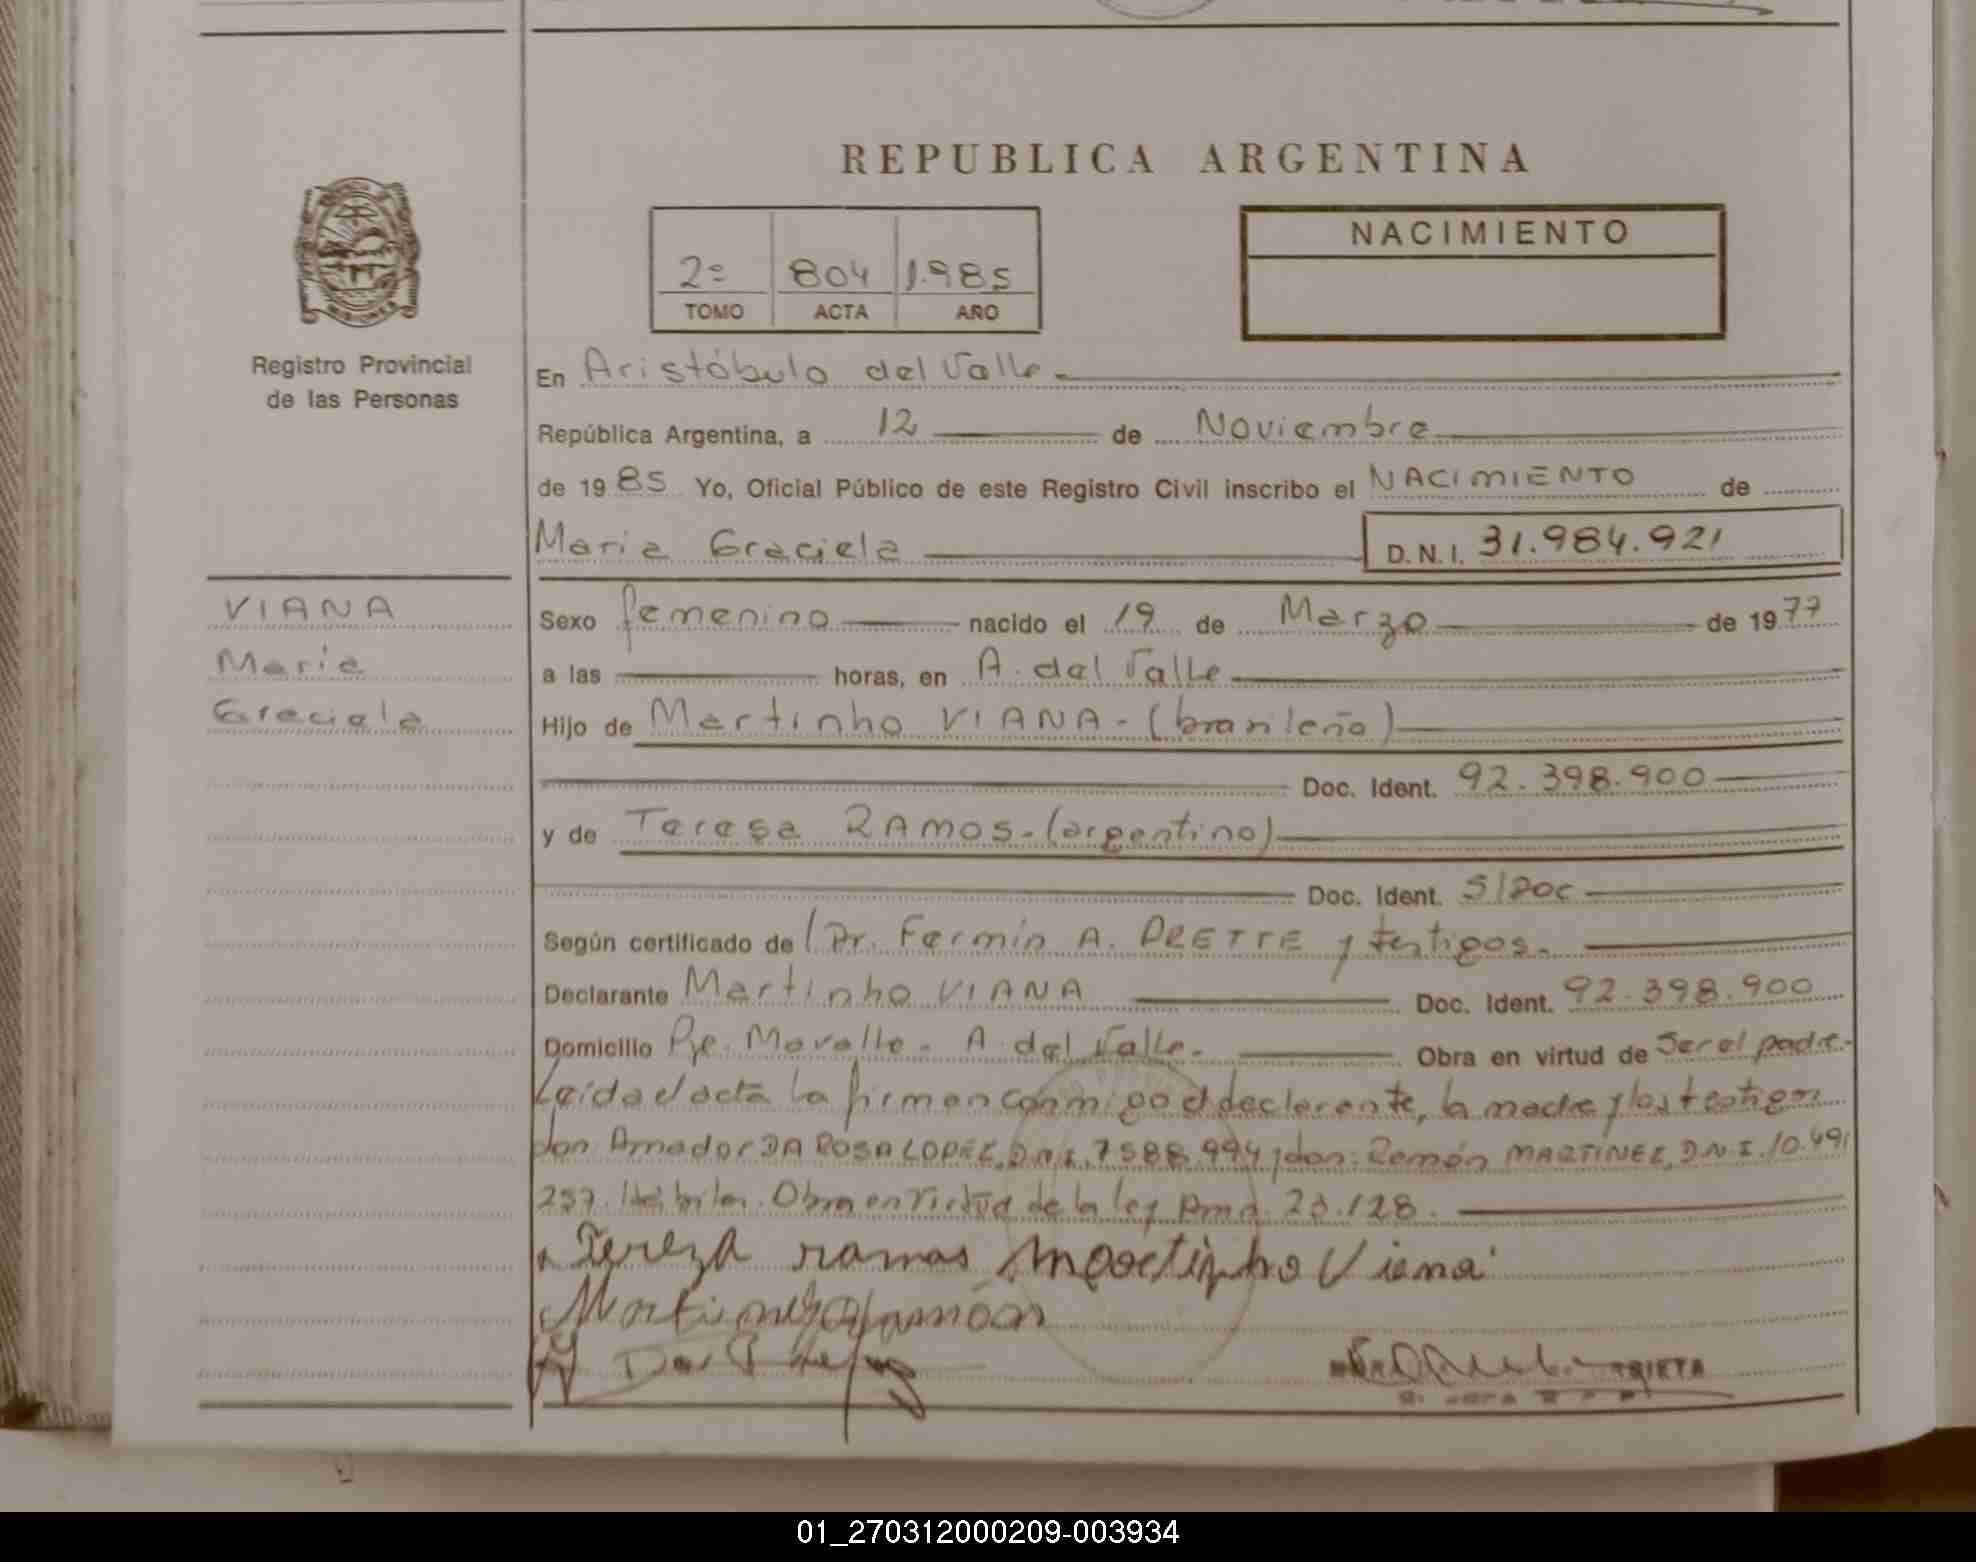 REPUBLICA ARGENTINA
NACIMIENTO
2º 804 1.985
TOMO ACTA AÑO
Registro Provincial
de las Personas
En Aristóbulo del Valle.
República Argentina, a 12 de Noviembre
de 1985 Yo, Oficial Público de este Registro Civil inscribo el NACIMIENTO de
Maria Graciela D.N.I. 31.984.921
VIANA
Maria
Graciela
Sexo femenino nacido el 19 de Marzo de 1977
a las horas, en A. del Valle
Hijo de Martinho VIANA - (brasileño)
Doc. Ident. 92.398.900
y de Teresa RAMOS - (argentino)
Doc. Ident. S/Doc
Según certificado de Dr. Fermín A. y testigos.
Declarante Martinho VIANA Doc. Ident. 92.398.900
Domicilio Pje. A. del Valle. Obra en virtud de Ser el padre.
Leída el acta la firman conmigo el declarante, la madre y los testigos
don Amador DA ROSA LOPEZ, D.N.I. 7588.994 y don: Ramón MARTINEZ, D.N.I. 10.491
257. Hábiles. Obra en virtud de la ley 23.128.
Tereza ramos Maortinho Viana
Martinez Ramón
01_270312000209-003934